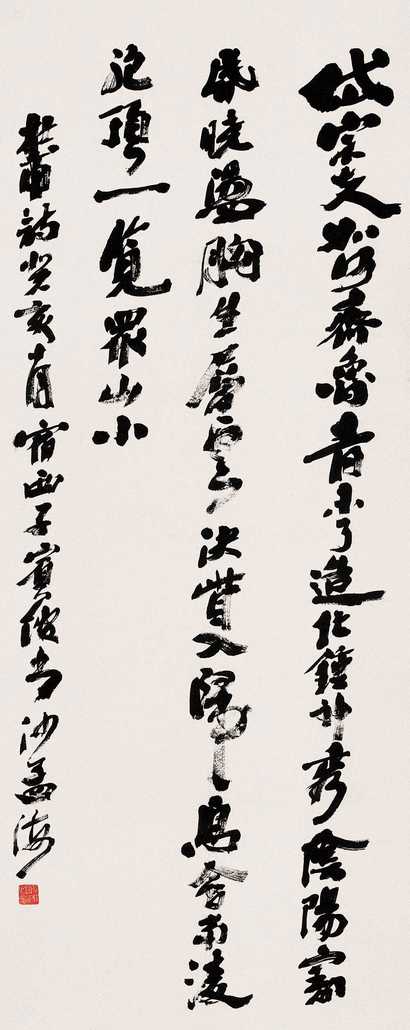 岱宗夫如何齊魯青未了造化鍾神秀陰陽割
昏曉盪胸生層雲決眥入歸鳥會當凌
絕頂一覽眾山小
杜甫詩癸亥宿西子賓館書沙孟海